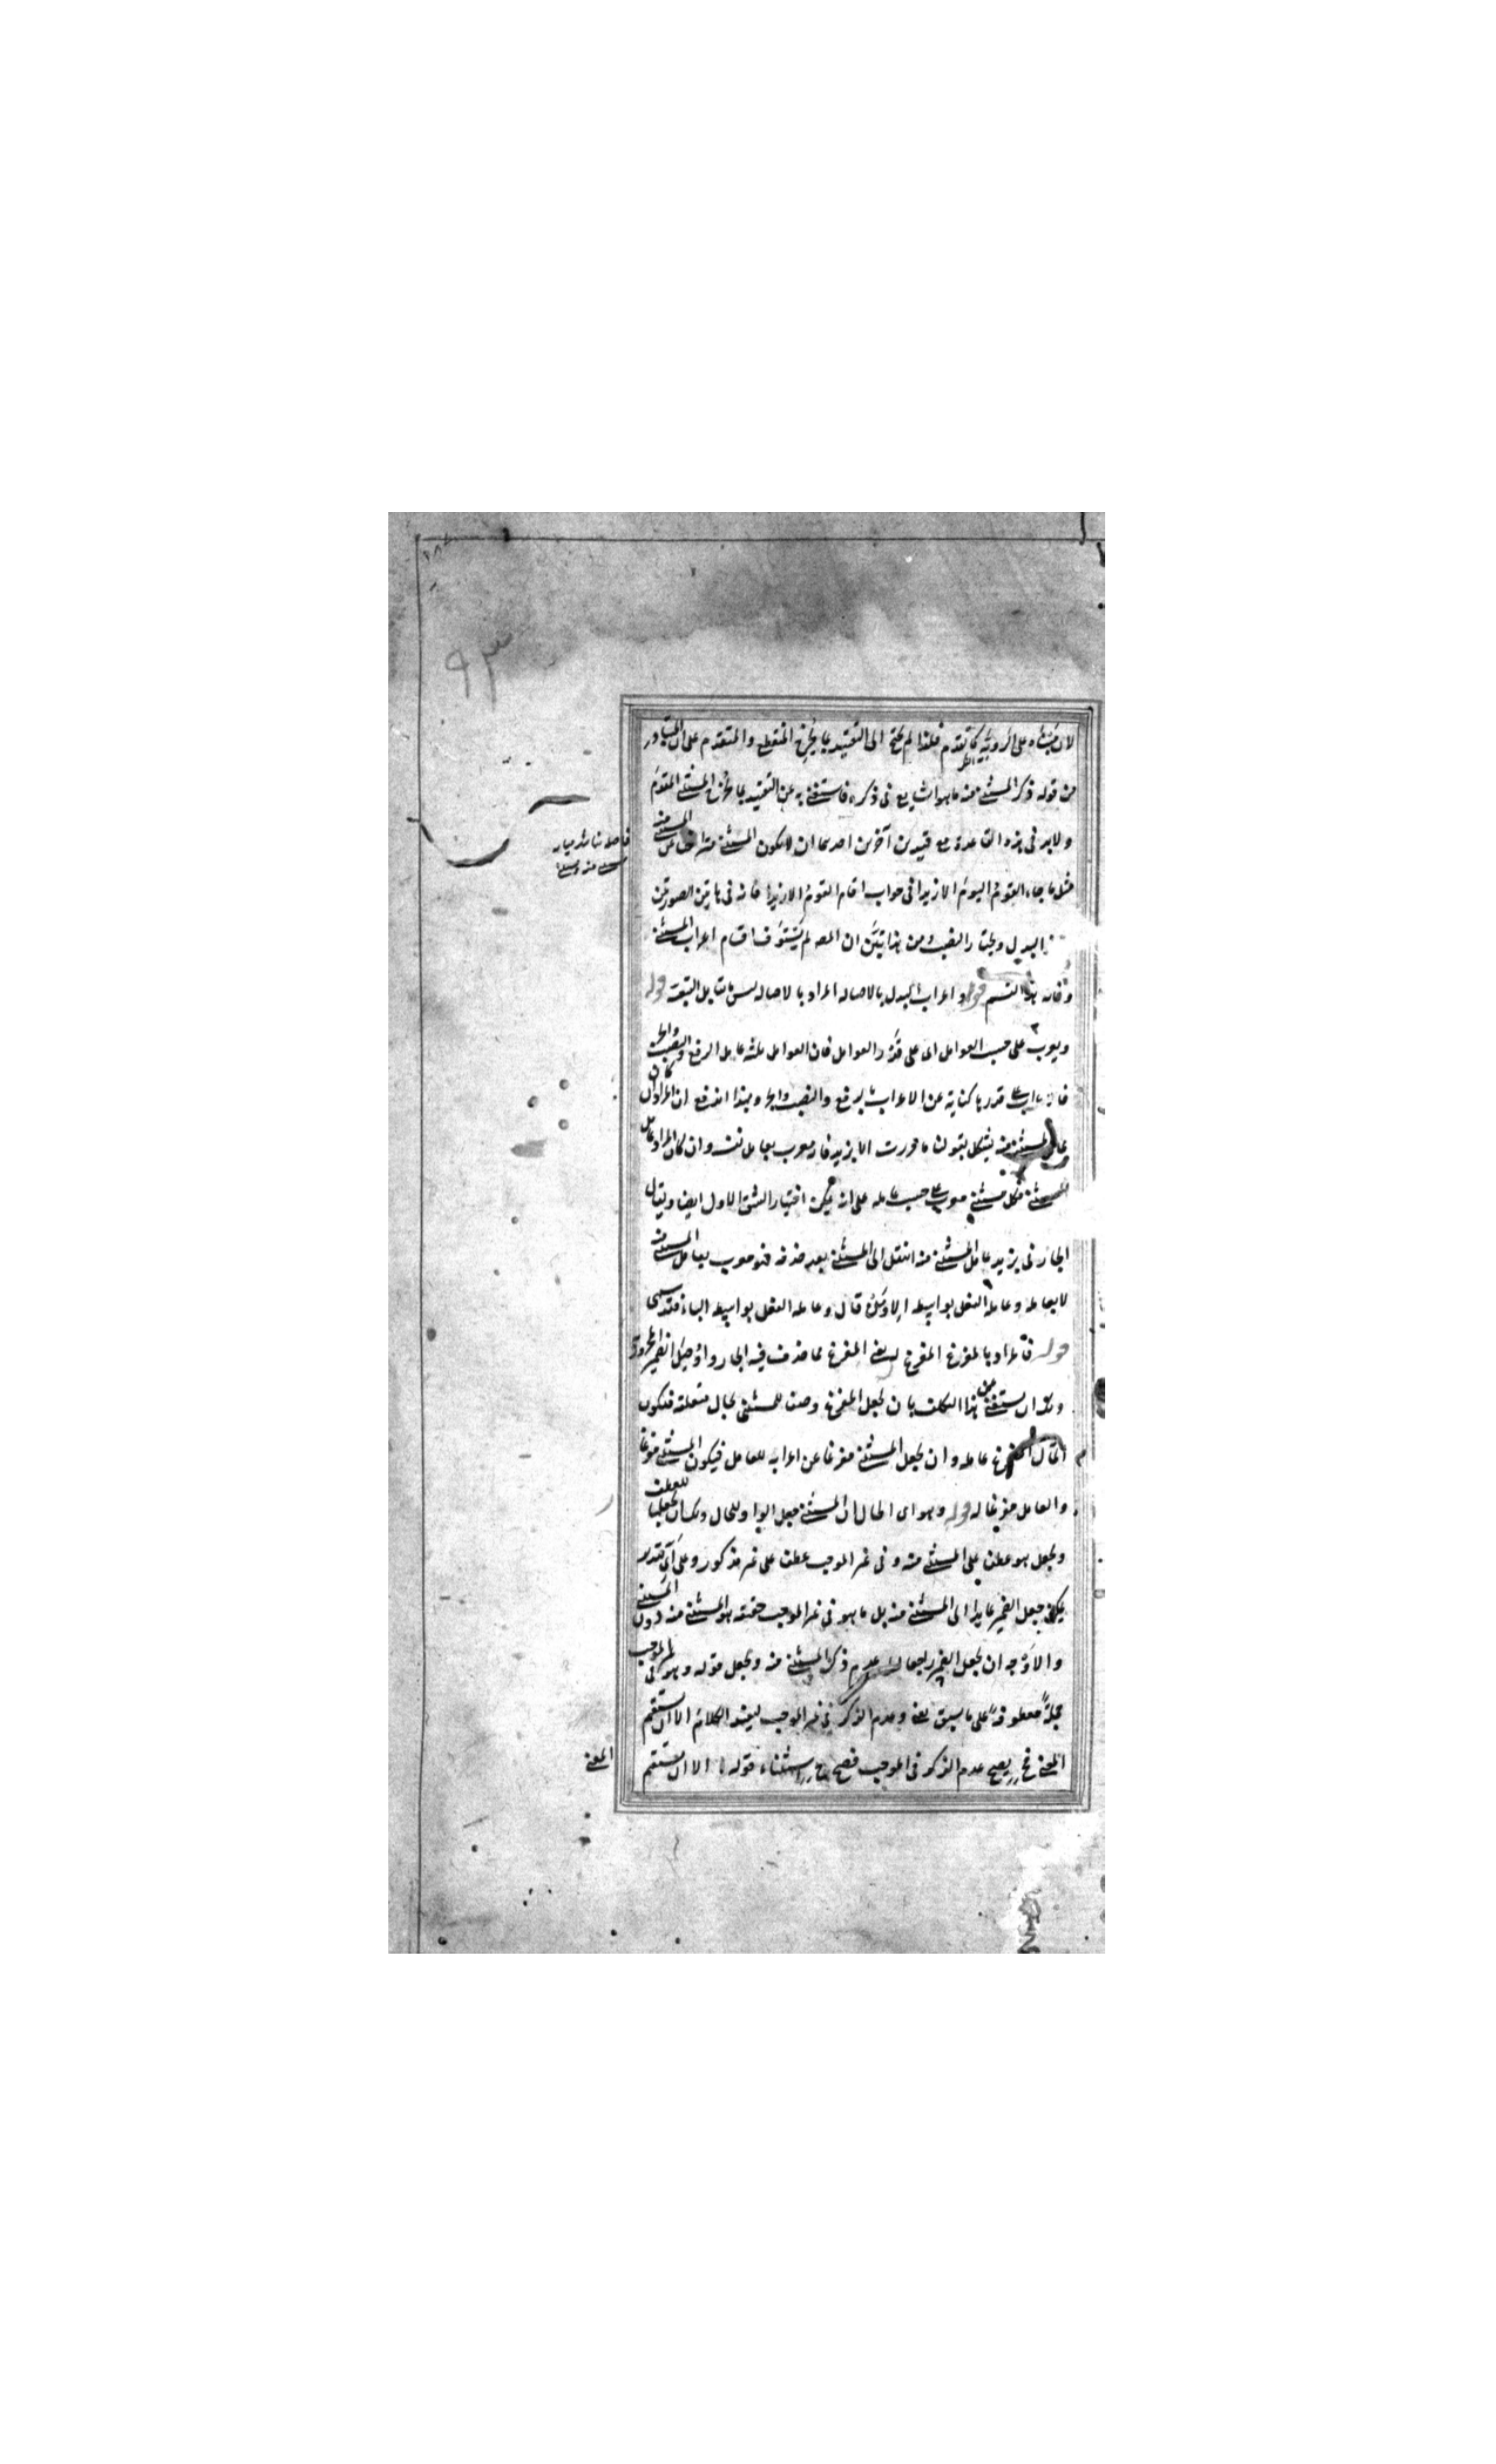 ٩٣
لان مبناه على الرواية كما تقدم فلهذا لم يحتج الى التقييد بما يخرج المنقطع والمتقدم على ان المتبادر
من قوله ذكر المستثنى منه ما هو الشايع فى ذكره فاستغنى به عن التقييد بما يخرج المستثنى المتقدم
ولابد فى هذه القاعدة مع قيدين آخرين احدهما ان لا يكون المستثنى متراخيا عن المستثنى منه
مثل ما جاء القوم اليوم الا زيدا فى جواب اقام القوم الا زيدا فانه فى هاتين الصورتين
البدل ويختار النصب ومن هذا تبين ان المص لم يستوف اقسام اعراب المستثنى
وفاته هذا القسم قوله اعراب البدل بالاصاله المراد بالاصاله ليس مقابل التبعية قوله
ويعرب على حسب العوامل اى على قدر العوامل فان العوامل ثلثة عامل الرفع والنصب والجر
قدرها كناية عن الاعراب بالرفع والنصب والجر وبهذا اندفع انه ان كان المراد
عامل المستثنى منه يشكل بقولنا ما مررت الا بزيد فانه معرب بعامل نفسه وان كان المراد عامل
المستثنى فكل مستثنى معرب على حسب عامله على انه يمكن اختيار الشق الاول ايضا ويقال
الجار فى بزيد عامل المستثنى منه انتقل الى المستثنى بعد حذفه فهو معرب بعامل المستثنى منه
لا بعامله وعامله الفعل بواسطه الا ومن قال وعامله الفعل بواسطه الباء فقد سهى
قوله فالمراد بالمفرغ المفرغ له يعنى المفرغ مما حذف فيه الجار واوصل الضمير المجرور
ولك ان تستغنى عن هذا التكلف بان يجعل المفرغ وصفا للمستثنى بحال متعلقه فيكون
المفرغ عامله وان يجعل المستثنى مفرغا عن اعرابه للعامل فيكون المستثنى مفرغا
والعامل مفرغا له قوله وهو اى الحال ان المستثنى جعل الواو للحال ولك ان تجعلها للعطف
ويجعل هو عطف على المستثنى منه و فى غير الموجب عطف على غير مذكور وعلى اى تقدير
يمكن جعل الضمير عايدا الى المستثنى منه بل ما هو فى غير الموجب حقيقه هو المستثنى منه دون المستثنى
والاوجه ان يجعل الضمير راجعا الى عدم ذكر المستثنى منه ويجعل قوله وهو فى غير الموجب
جملة معطوفة على ما سبق يعنى وعدم الذكر فى غير الموجب ليفيد الكلام الا ان يستقيم
المعنى فح يصح عدم الذكر فى الموجب فصح ح استثناء قوله الا ان يستقيم
المعنى